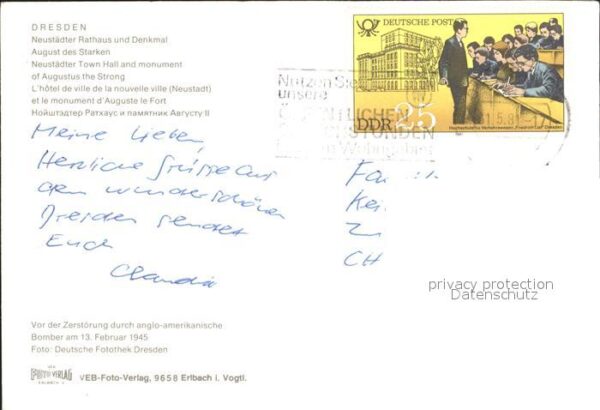 DRESDEN
Neustädter Rathaus und Denkmal
August des Starken
Neustädter Town Hall and monument
of Augustus the Strong
L'hôtel de ville de la nouvelle ville (Neustadt)
et le monument d'Auguste le Fort
Нойштэдтер Ратхаус и памятник Августу II
DEUTSCHE POST
25
DDR
Hochschule für Verkehrswesen „Friedrich List" Dresden
Nutzen Sie
unsere
Meine Lieben,
Herzliche Grüsse aus
dem wunderschönen
Dresden sendet
Euch
Claudia
Fa
Kei
Z
CH
privacy protection
Datenschutz
Vor der Zerstörung durch anglo-amerikanische
Bomber am 13. Februar 1945
Foto: Deutsche Fotothek Dresden
VEB-Foto-Verlag, 9658 Erlbach i. Vogtl.